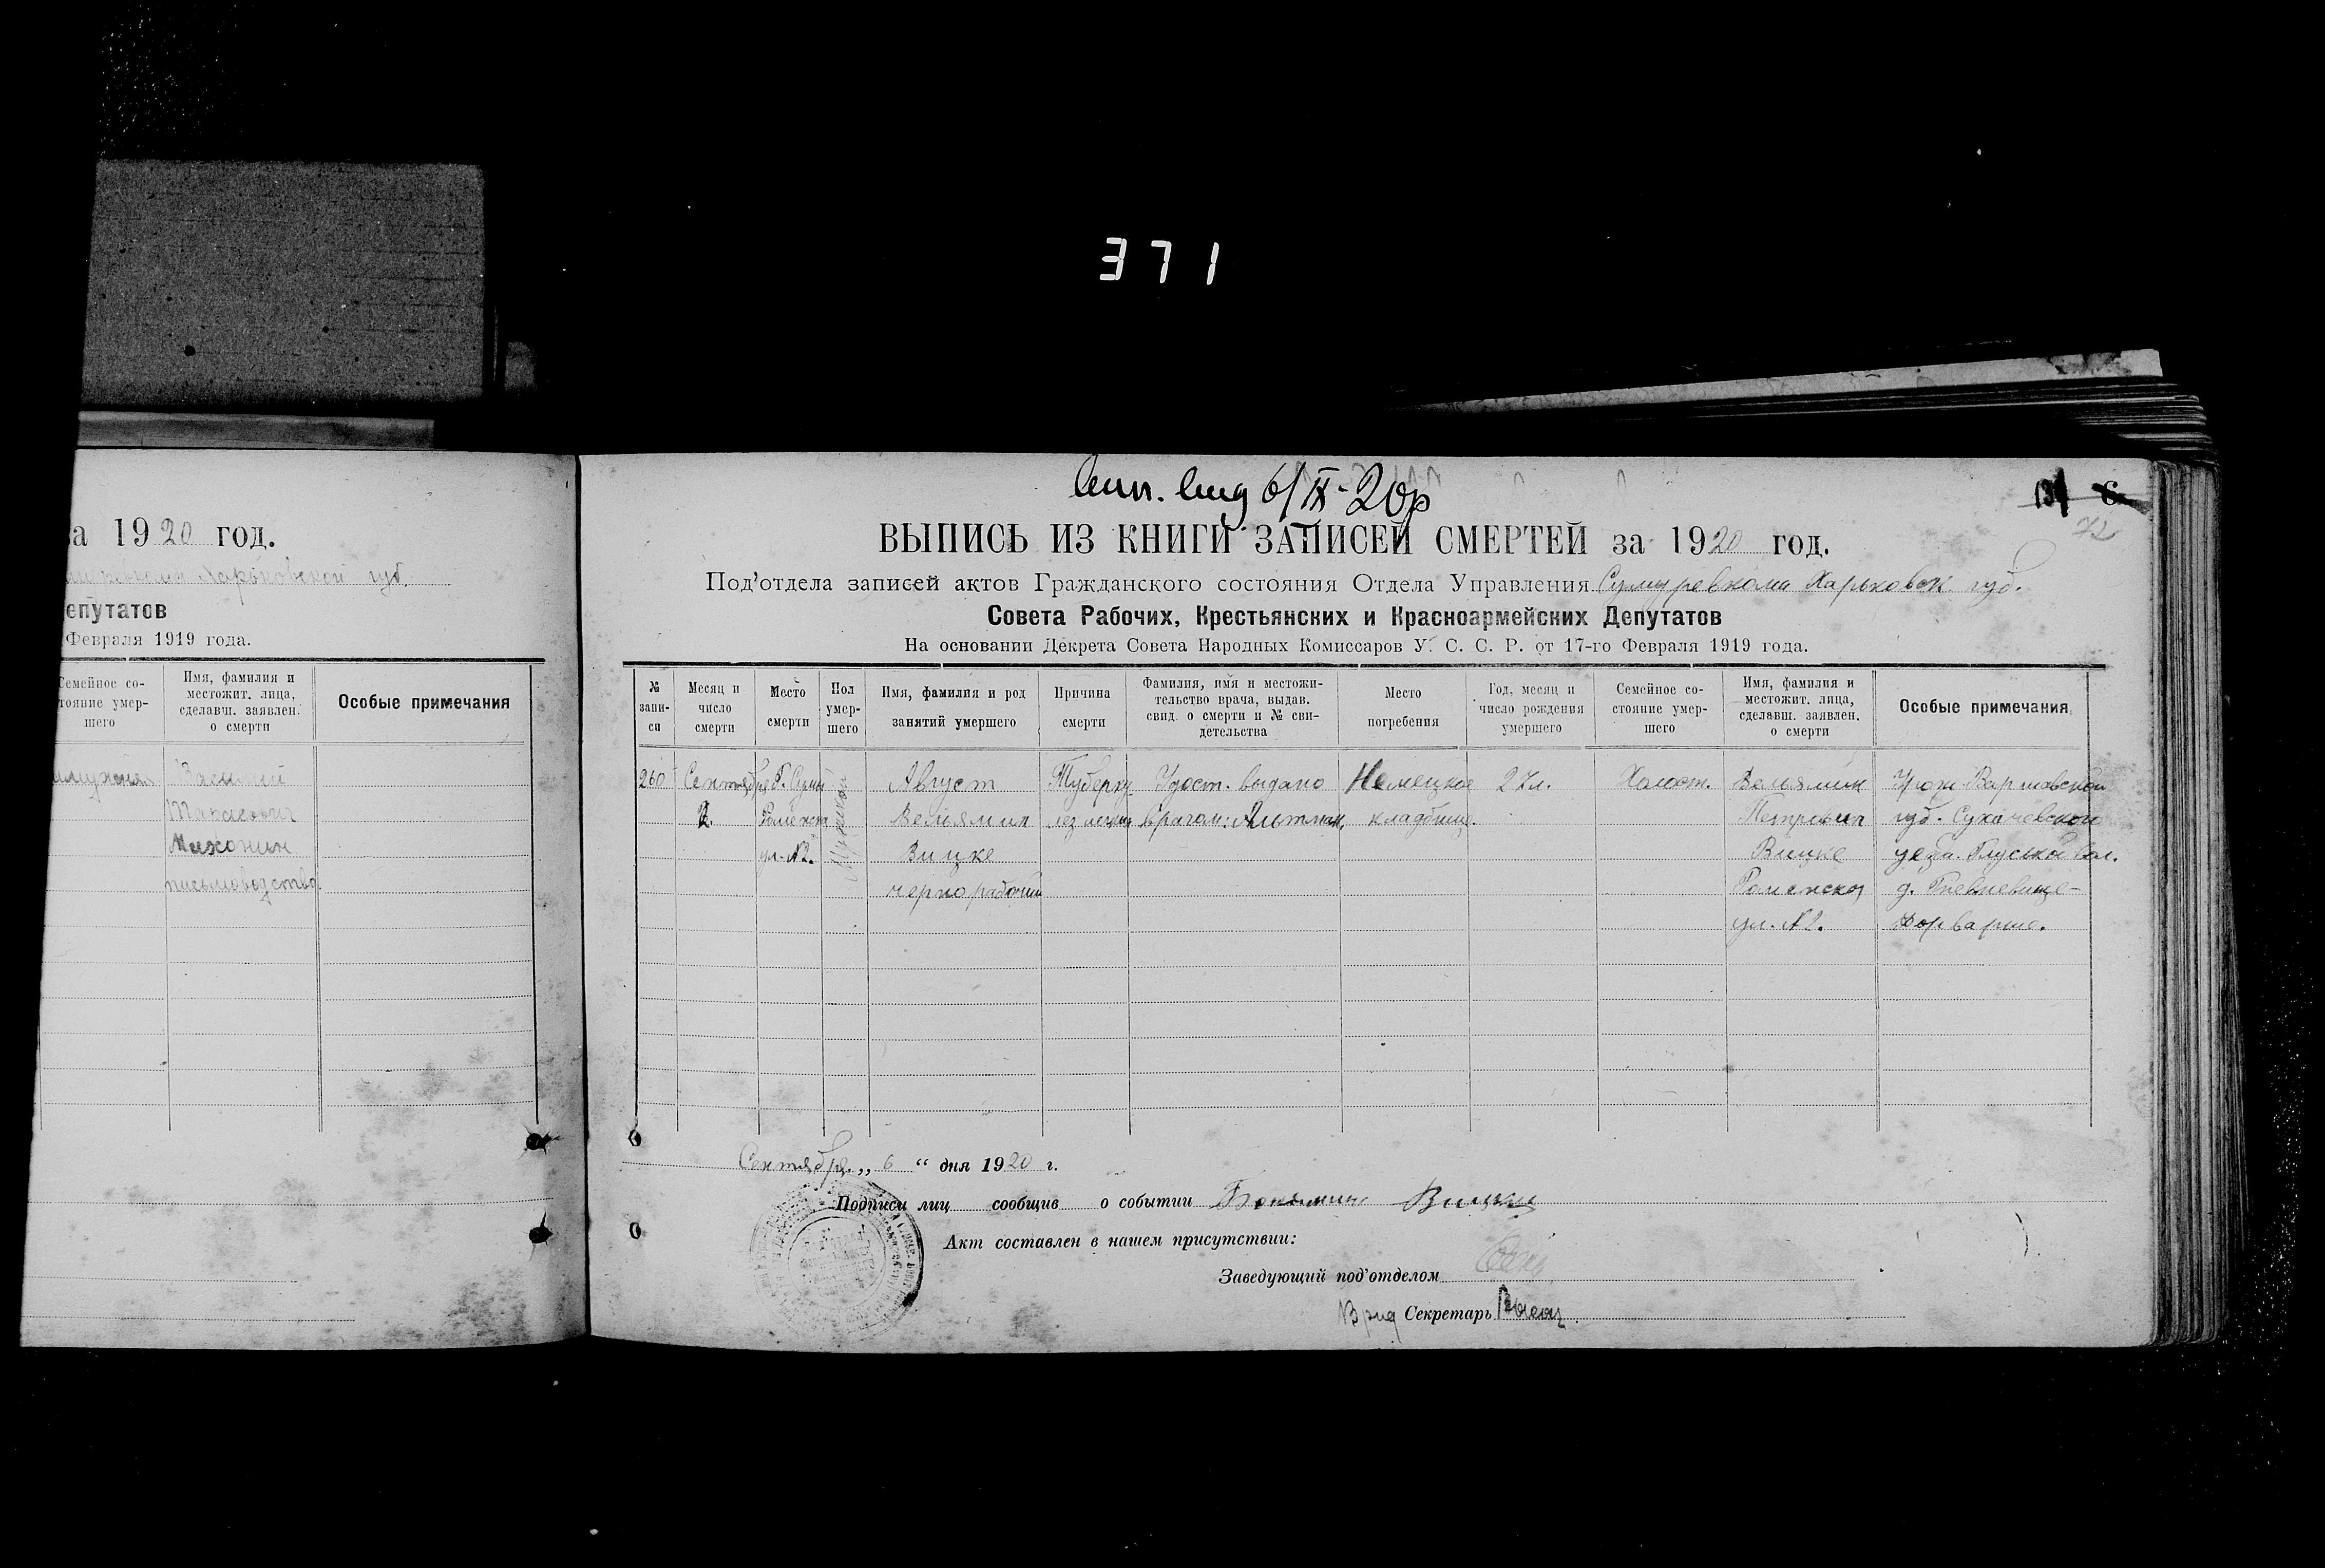 371
за 1920 год.
Харьковской губ.
епутатов
Февраля 1919 года.
Семейное со-
тояние умер-
шего
Имя, фамилия и
местожит. лица,
сделавш. заявлен.
о смерти
Особые примечания
письмоводство
6/IX-20р
72
ВЫПИСЬ ИЗ КНИГИ ЗАПИСЕЙ СМЕРТЕЙ за 1920 год.
Под'отдела записей актов Гражданского состояния Отдела Управления Сумуревкома Харьковск. губ.
Совета Рабочих, Крестьянских и Красноармейских Депутатов
На основании Декрета Совета Народных Комиссаров У. С. С. Р. от 17-го Февраля 1919 года.
№
запи-
си
Месяц и
число
смерти
Место
смерти
Пол
умер-
шего
Имя, фамилия и род
занятий умершего
Причина
смерти
Фамилия, имя и местожи-
тельство врача, выдав.
свид. о смерти и № сви-
детельства
Место
погребения
Год, месяц и
число рождения
умершего
Семейное со-
стояние умер-
шего
Имя, фамилия и
местожит. лица,
сделавш. заявлен.
о смерти
Особые примечания
260
Сентября
2.
г. Сумы
Роменск
ул. №2.
Мужской
Август
Вельямин
Вицке
чернорабочий
Туберку-
лез легких
Удост. выдано
врачом:
Немецкое
кладбище.
27 л.
Холост.
Вельямин
Петрович
Вицке
Роменская
ул. №2.
Урож. Варшавской
губ. Сухачевского
уезда.
д.
Сентября „ 6 “ дня 1920 г.
Подписи лиц сообщив о событии Вицке
Акт составлен в нашем присутствии:
Заведующий под'отделом
Врид Секретарь